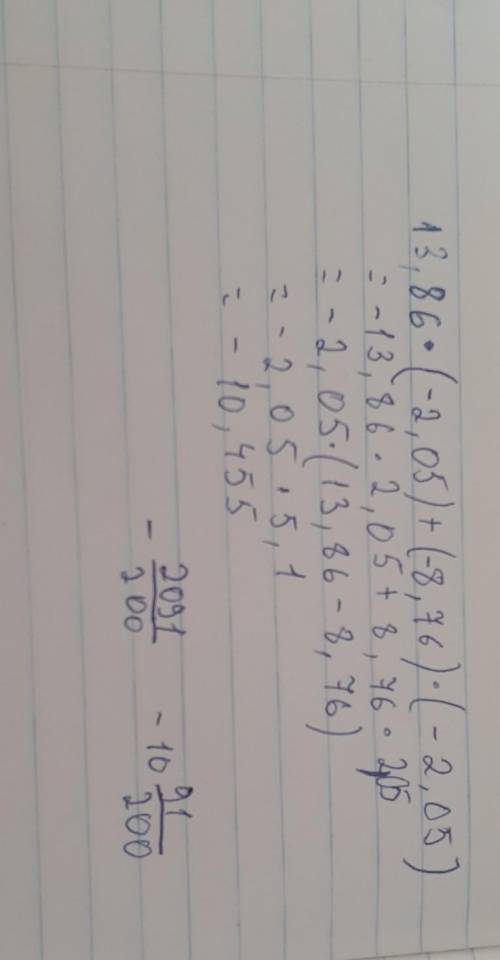 13,86·(-2,05)+(-8,76)·(-2,05)
= -13,86·2,05+8,76·2,05
= -2,05·(13,86-8,76)
= -2,05·5,1
= -10,455
-2091/200 -10 91/200